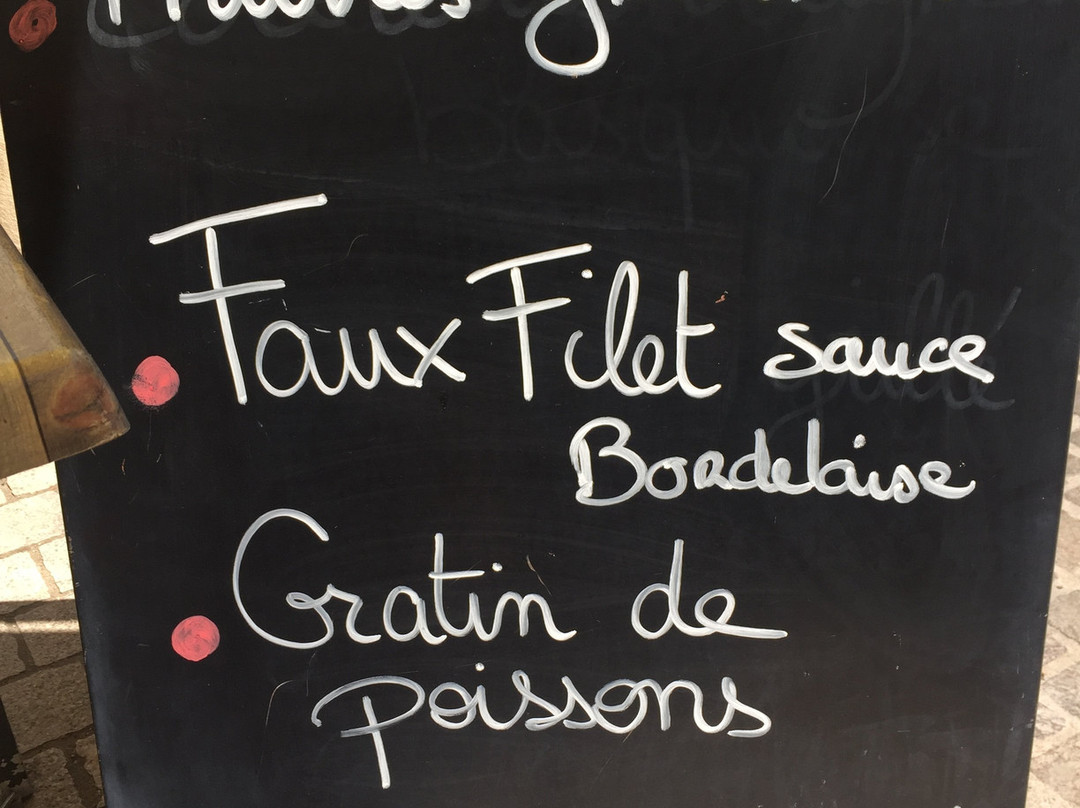 Faux Filet sauce
Bordelaise
Gratin de
poissons